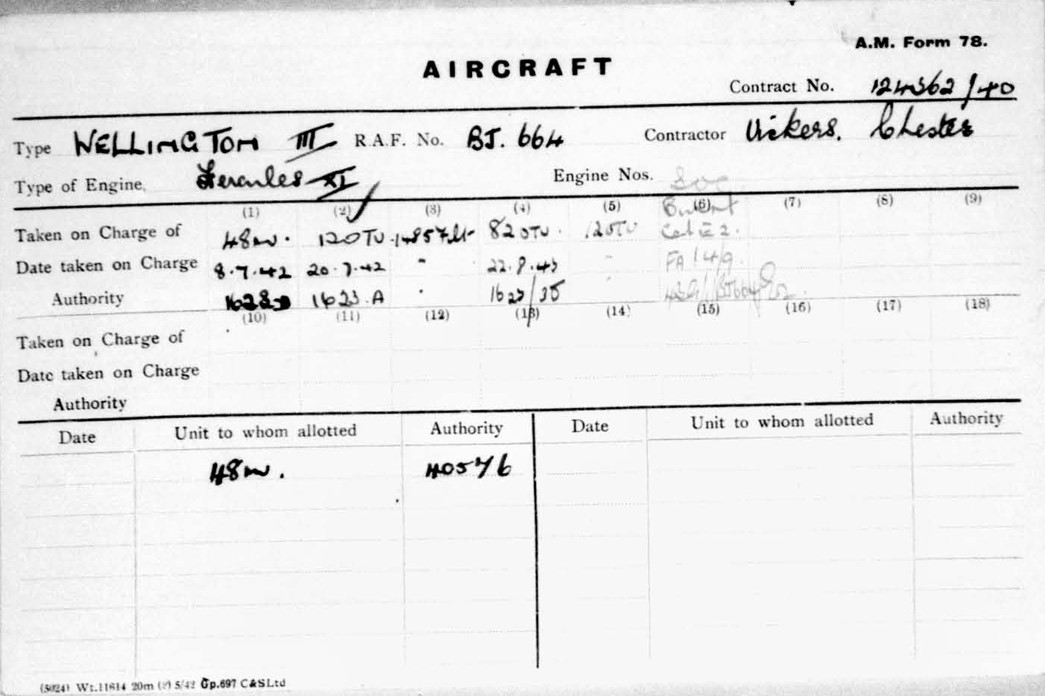 A.M. Form 78.
AIRCRAFT
Contract No. 124362/40
Type WELLINGTON III R.A.F. No. BJ. 664 Contractor Vickers. Chester
Type of Engine. Hercules XI Engine Nos.
SOC
(1) (2) (3) (4) (5) (6) (7) (8) (9)
Taken on Charge of 48MU. 12OTU 82OTU. 12OTU Cat E 2.
Date taken on Charge 8.7.42 20.7.42 " 22.8.43 " FA 14/9.
Authority 1623.A " 1623/35
(10) (11) (12) (13) (14) (15) (16) (17) (18)
Taken on Charge of
Date taken on Charge
Authority
Date Unit to whom allotted Authority Date Unit to whom allotted Authority
48MU. 40576
(5024) Wt.11614 20m 5/42 Gp.697 C&SLtd